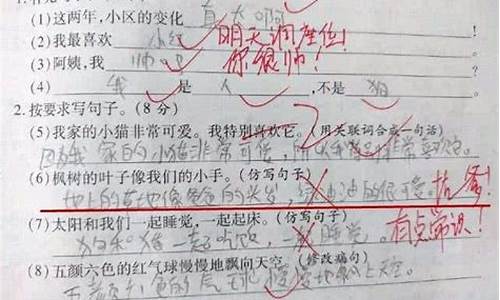 (1)这两年,小区的变化 真大啊
(2)我最喜欢 小红 明天调座位!
(3)阿姨,我 帅吗 你很帅!
(4) 我 是 人 ,不是 狗
2.按要求写句子。(8分)
(5)我家的小猫非常可爱。我特别喜欢它。(用关联词合成一句话)
因为我家的小猫非常可爱,所以我特别非常喜欢它。
(6)枫树的叶子像我们的小手。(仿写句子)
地上的草地像爸爸的头发,绿油油的很可爱。抗家!
(7)太阳和我们一起睡觉,一起起床。(仿写句子)
狗和猪一起吃饭,一起睡觉。 有点常识!
(8)五颜六色的红气球慢慢地飘向天空。(修改病句)
五颜六色的气球慢慢地飘上天空。